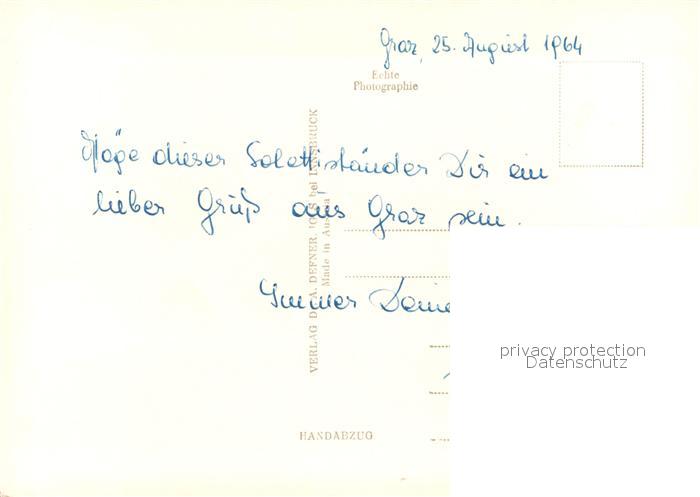 Graz, 25. August 1964
Echte
Photographie
Möge dieser Solettiständer Dir ein
lieber Gruß aus Graz sein.
Immer
VERLAG DR. A. DEFNER, IGLS bei INNSBRUCK
Made in Austria
HANDABZUG
privacy protection
Datenschutz